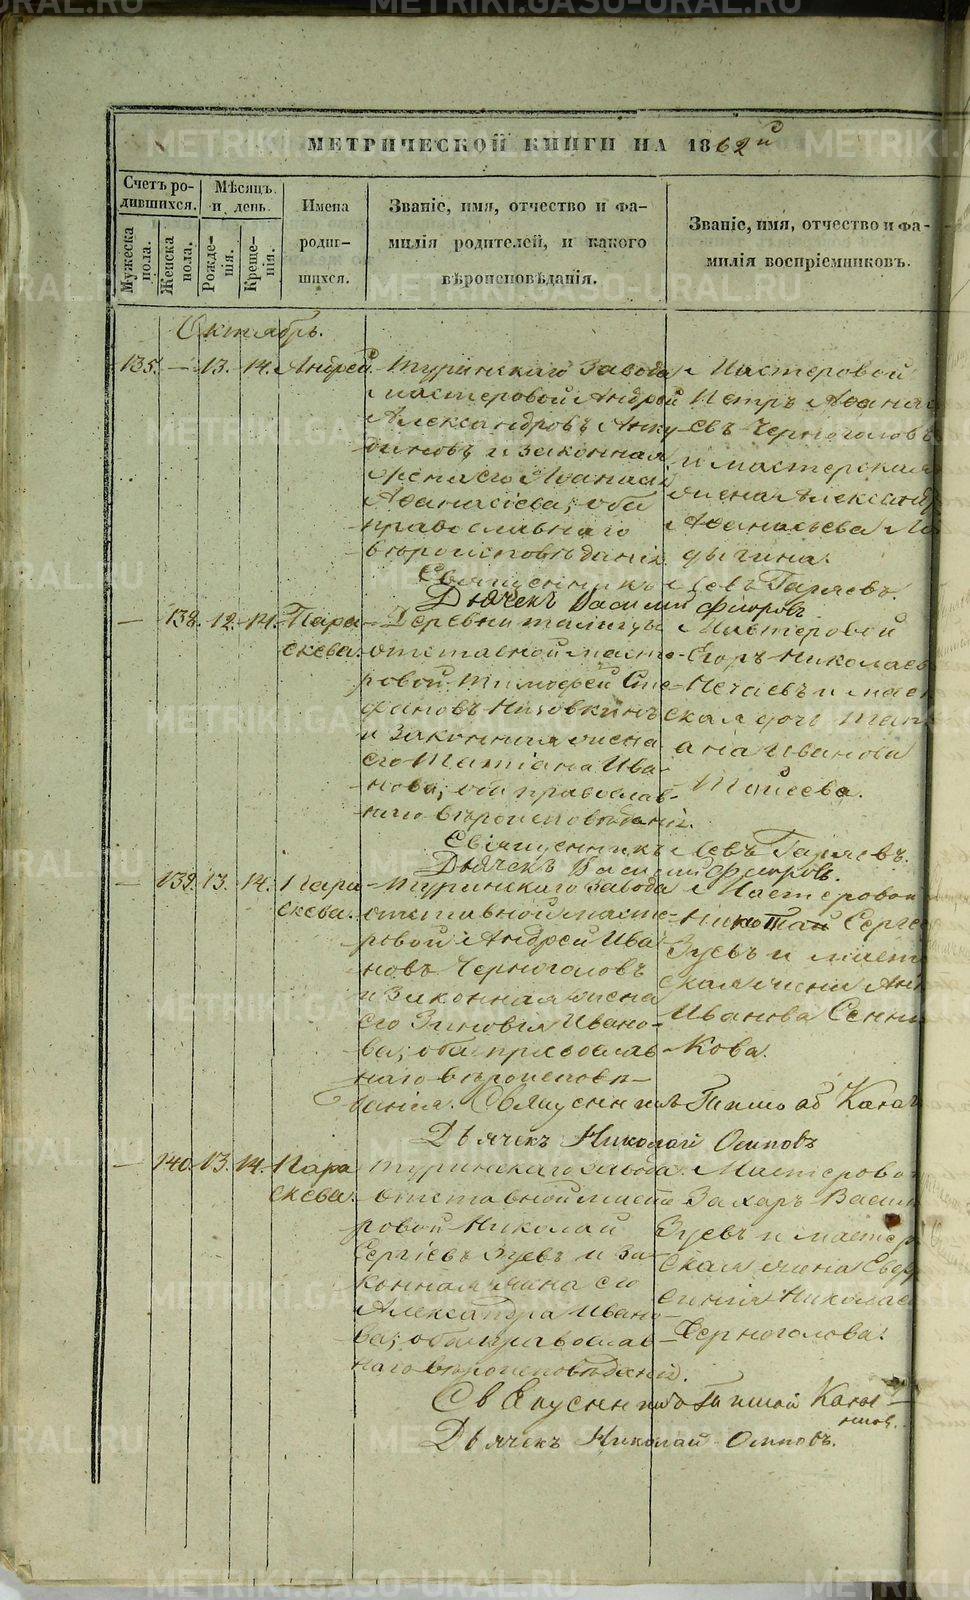 МЕТРИЧЕСКОЙ КНИГИ НА 1862й
Счетъ ро-
дившихся.
Мѣсяцъ
и день.
Имена
родив-
шихся.
Званіе, имя, отчество и фа-
милія родителей, и какого
вѣроисповѣданія.
Званіе, имя, отчество и фа-
милія воспріемниковъ.
Мужеска
пола.
Женска
пола.
Рожде-
нія.
Креще-
нія.
Октябрь.
135. — 13. 14. Андрей
Туринскаго завода
мастеровой Андрей
Александровъ Анку
диновъ и законная
жена его
Афанасіева; оба
православнаго
вѣроисповѣданія
Мастеровой
Петръ Афанас
евъ Черноголовъ
и мастерская
жена Александр
Афанасьева Ла
дыгина.
Священникъ Левъ Гаряевъ.
Дьячекъ Василий Флоровъ
— 138. 12. 14. Пара
скева.
Деревни Талицы
отставной масте
ровой Тимофей Сте
фановъ Низовкинъ
и законная жена
его Татіана Ива-
нова; оба православ-
наго вѣроисповѣданія.
Мастеровой
Егоръ Николаев
Нечаевъ и мастер
ская дочь Тати
ана Иванова
Моисеева.
Священникъ Левъ Гаряевъ.
Дьячекъ Василий Флоровъ.
— 139. 13. 14. Пара
скева.
Туринскаго завода
отставной масте-
ровой Андрей Ива
новъ Черноголовъ
и законная жена
его Зиновія Ивано-
ва; оба православ
наго вѣроисповѣ-
данія.
Мастеровой
Николай Серге
Зуевъ и мастер
ская жена Анн
Иванова Сенни
кова.
Священникъ
Дьячекъ Николай Осиповъ
— 140. 13. 14. Пара
скева.
Туринскаго завода
отставной масте
ровой Николай
Сергіевъ Зуевъ и за
конная жена его
Александра Ивано-
ва; оба православ
наго вѣроисповѣданія.
Мастеровой
Захаръ Васил
Зуевъ и мастер
ская жена Евдо
Николаев
Черноголова.
Священникъ
Дьячекъ Николай Осиповъ.
METRIKI.GASO-URAL.RU